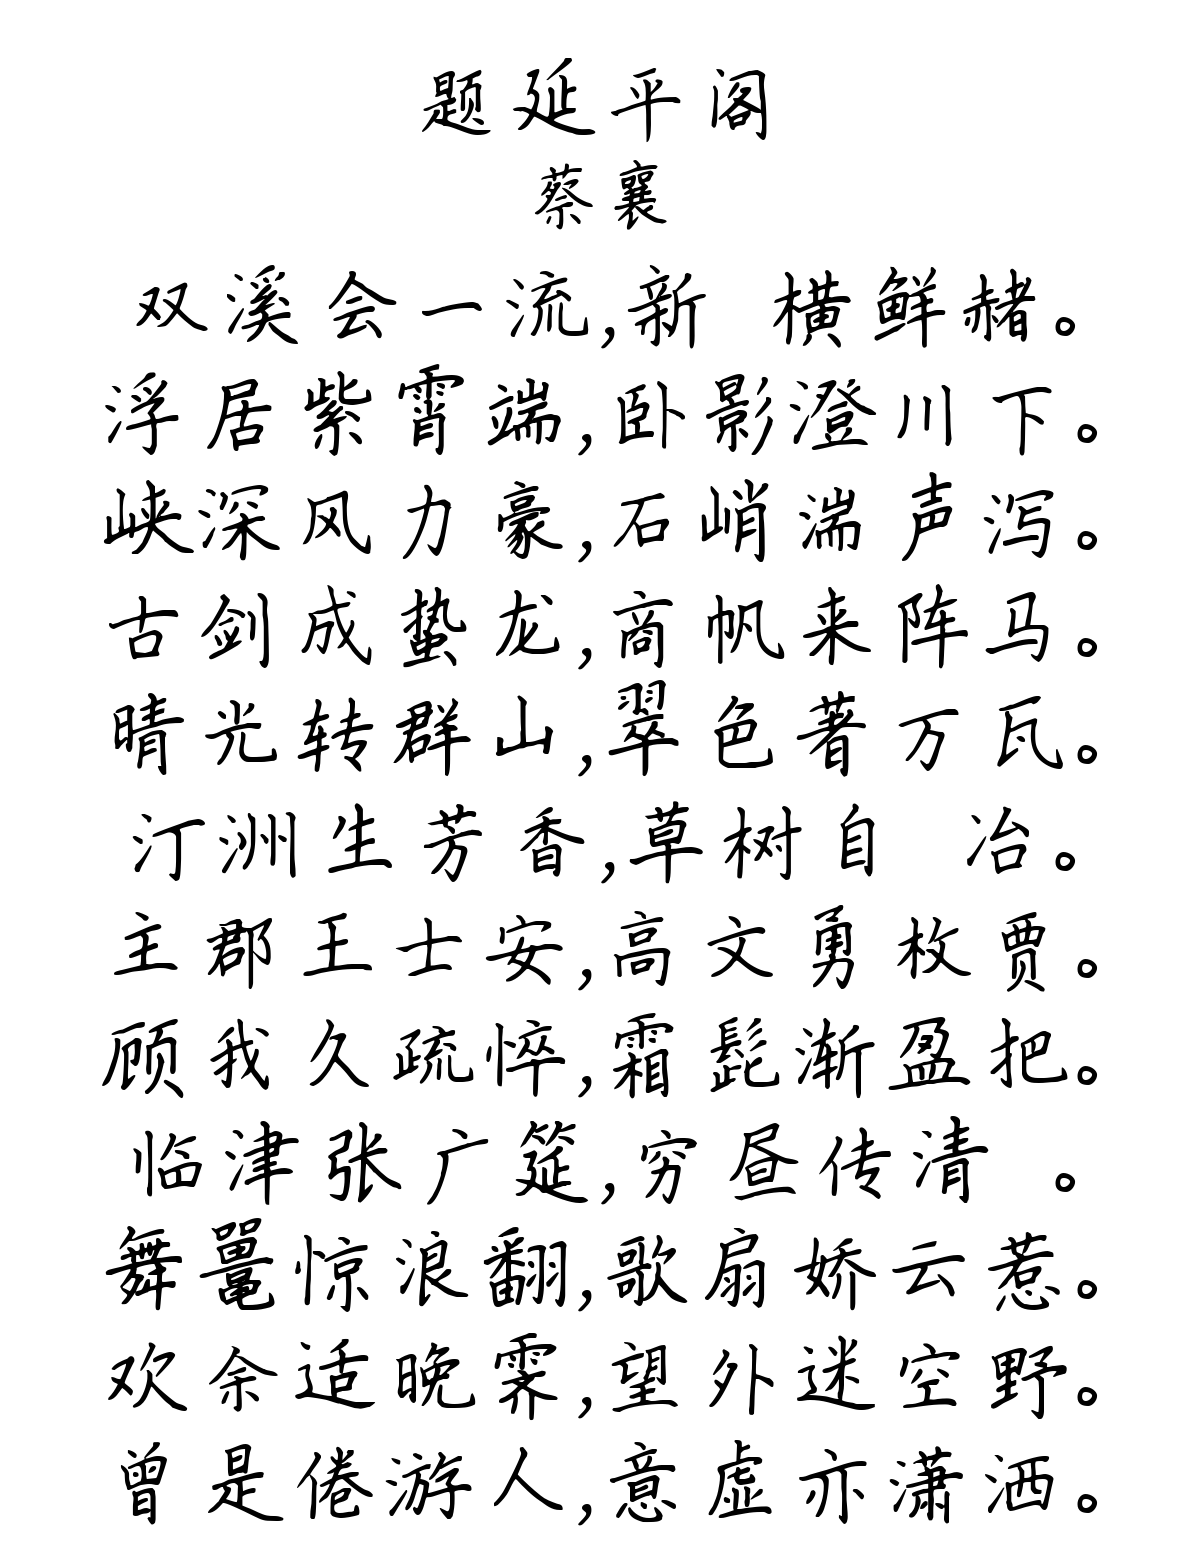 题延平阁
蔡襄
双溪会一流,新 横鲜赭。
浮居紫霄端,卧影澄川下。
峡深风力豪,石峭湍声泻。
古剑成蛰龙,商帆来阵马。
晴光转群山,翠色著万瓦。
汀洲生芳香,草树自 冶。
主郡王士安,高文勇枚贾。
顾我久疏悴,霜髭渐盈把。
临津张广筵,穷昼传清 。
舞鼍惊浪翻,歌扇娇云惹。
欢余适晚霁,望外迷空野。
曾是倦游人,意虚亦潇洒。